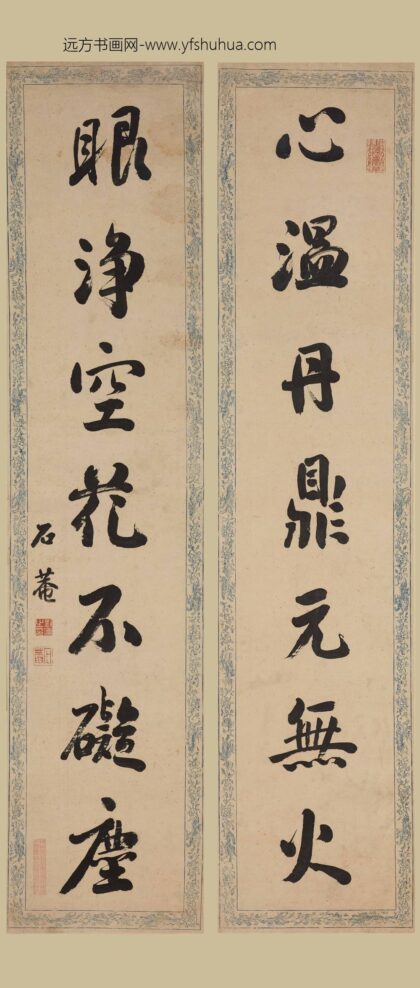 远方书画网-www.yfshuhua.com
心溫丹鼎元無火
眼淨空花不礙塵
石菴